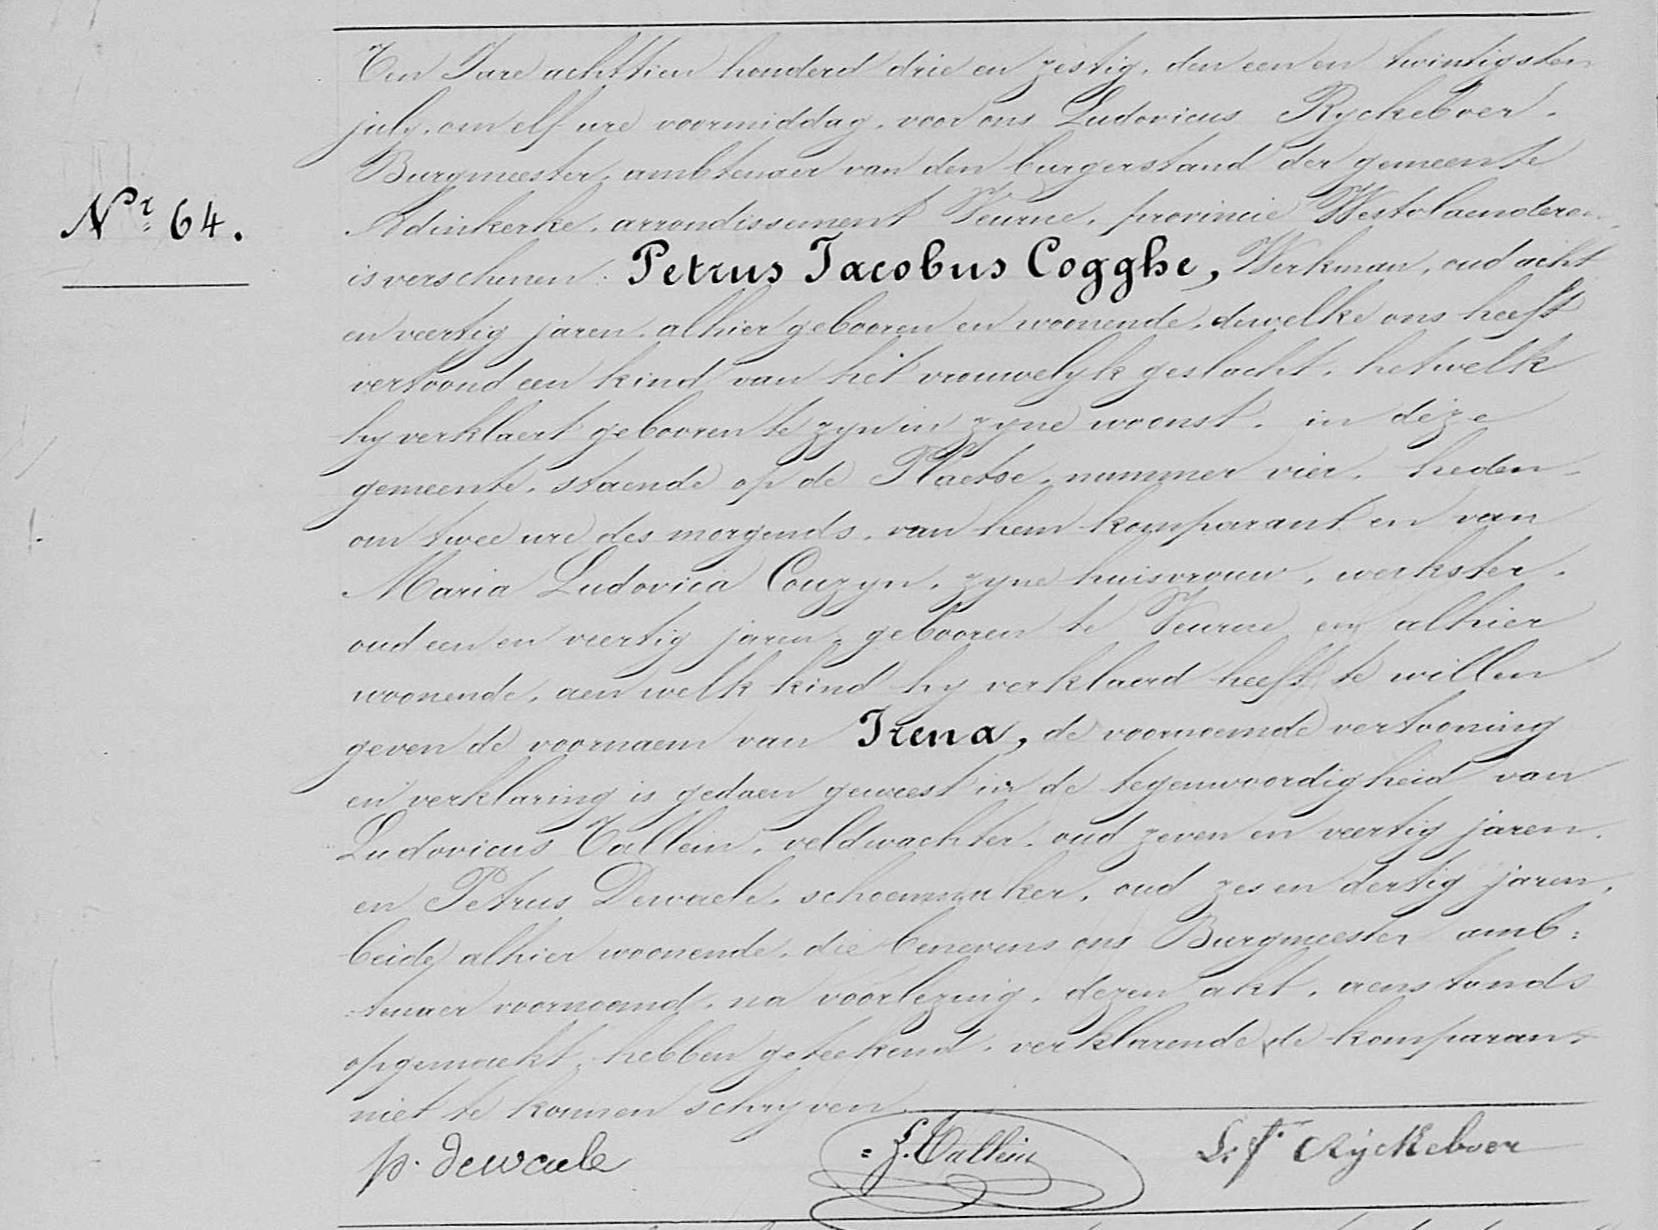 Ten Jare achttien honderd drie en zestig, den een en twintigsten
july, om elf ure voormiddag, voor ons Ludovicus Ryckeboer,
Burgmeester, ambtenaer van den burgerstand der gemeente
Nr. 64. Adinkerke, arrondissement Veurne, provincie Westvlaenderen
is verschenen: Petrus Jacobus Cogghe, Werkman, oud acht
en veertig jaren, alhier gebooren en woonende, dewelke ons heeft
vertoond een kind van het vrouwelyk geslacht, hetwelk
hy verklaert gebooren te zyn in zyne woonst, in deze
gemeente, staende op de Plaetse, nummer vier, heden
om twee ure des morgends, van hem komparant en van
Maria Ludovica Couzyn, zyne huisvrouw, werkster,
oud een en veertig jaren, gebooren te Veurne en alhier
woonende, aen welk kind hy verklaerd heeft te willen
geven de voornaem van Irena, de voornoemde vertooning
en verklaring is gedaen geweest in de tegenwoordigheid van
Ludovicus Tallein, veldwachter, oud zeven en veertig jaren,
en Petrus Dewaele, schoenmaker, oud zes en dertig jaren,
beide alhier woonende, die benevens ons Burgmeester amb=
=tenaer voornoemd, na voorlezing, dezen akt, aenstonds
opgemaekt, hebben geteekend, verklarende de komparant
niet te konnen schryven.
p. dewaele = L. Tallein L. f. Ryckeboer